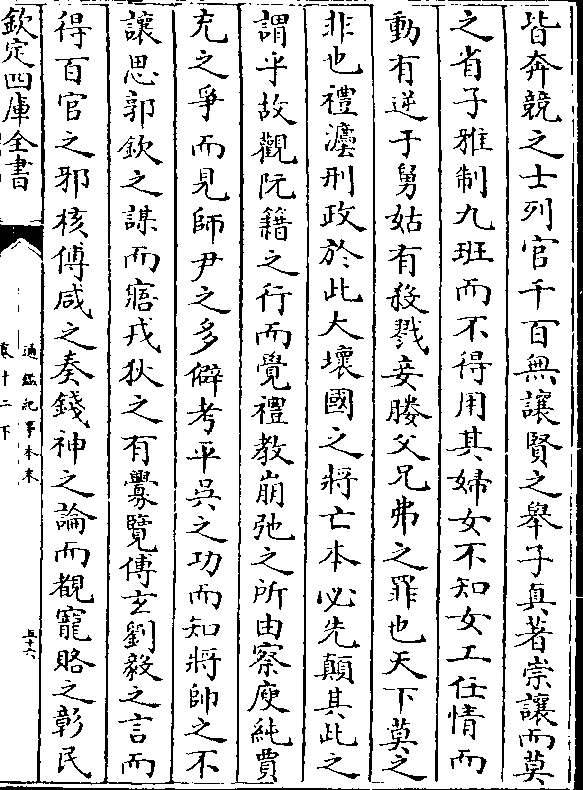 皆奔競之士列官千百無讓賢之舉子真著崇讓而莫
之省子雅制九班而不得用其婦女不知女工任情而
動有逆于舅姑有殺戮妾媵父兄弗之罪也天下莫之
非也禮灋刑政於此大壞國之將亡本必先顛其此之
謂乎故觀阮籍之行而覺禮教崩弛之所由察庾純賈
充之爭而見師尹之多僻考平吳之功而知將帥之不
讓思郭欽之謀而寤戎狄之有釁覽傅玄劉毅之言而
得百官之邪核傅咸之奏錢神之論而覩寵賂之彰民
欽定四庫全書
通鑑紀事本末
卷十二下
五十六